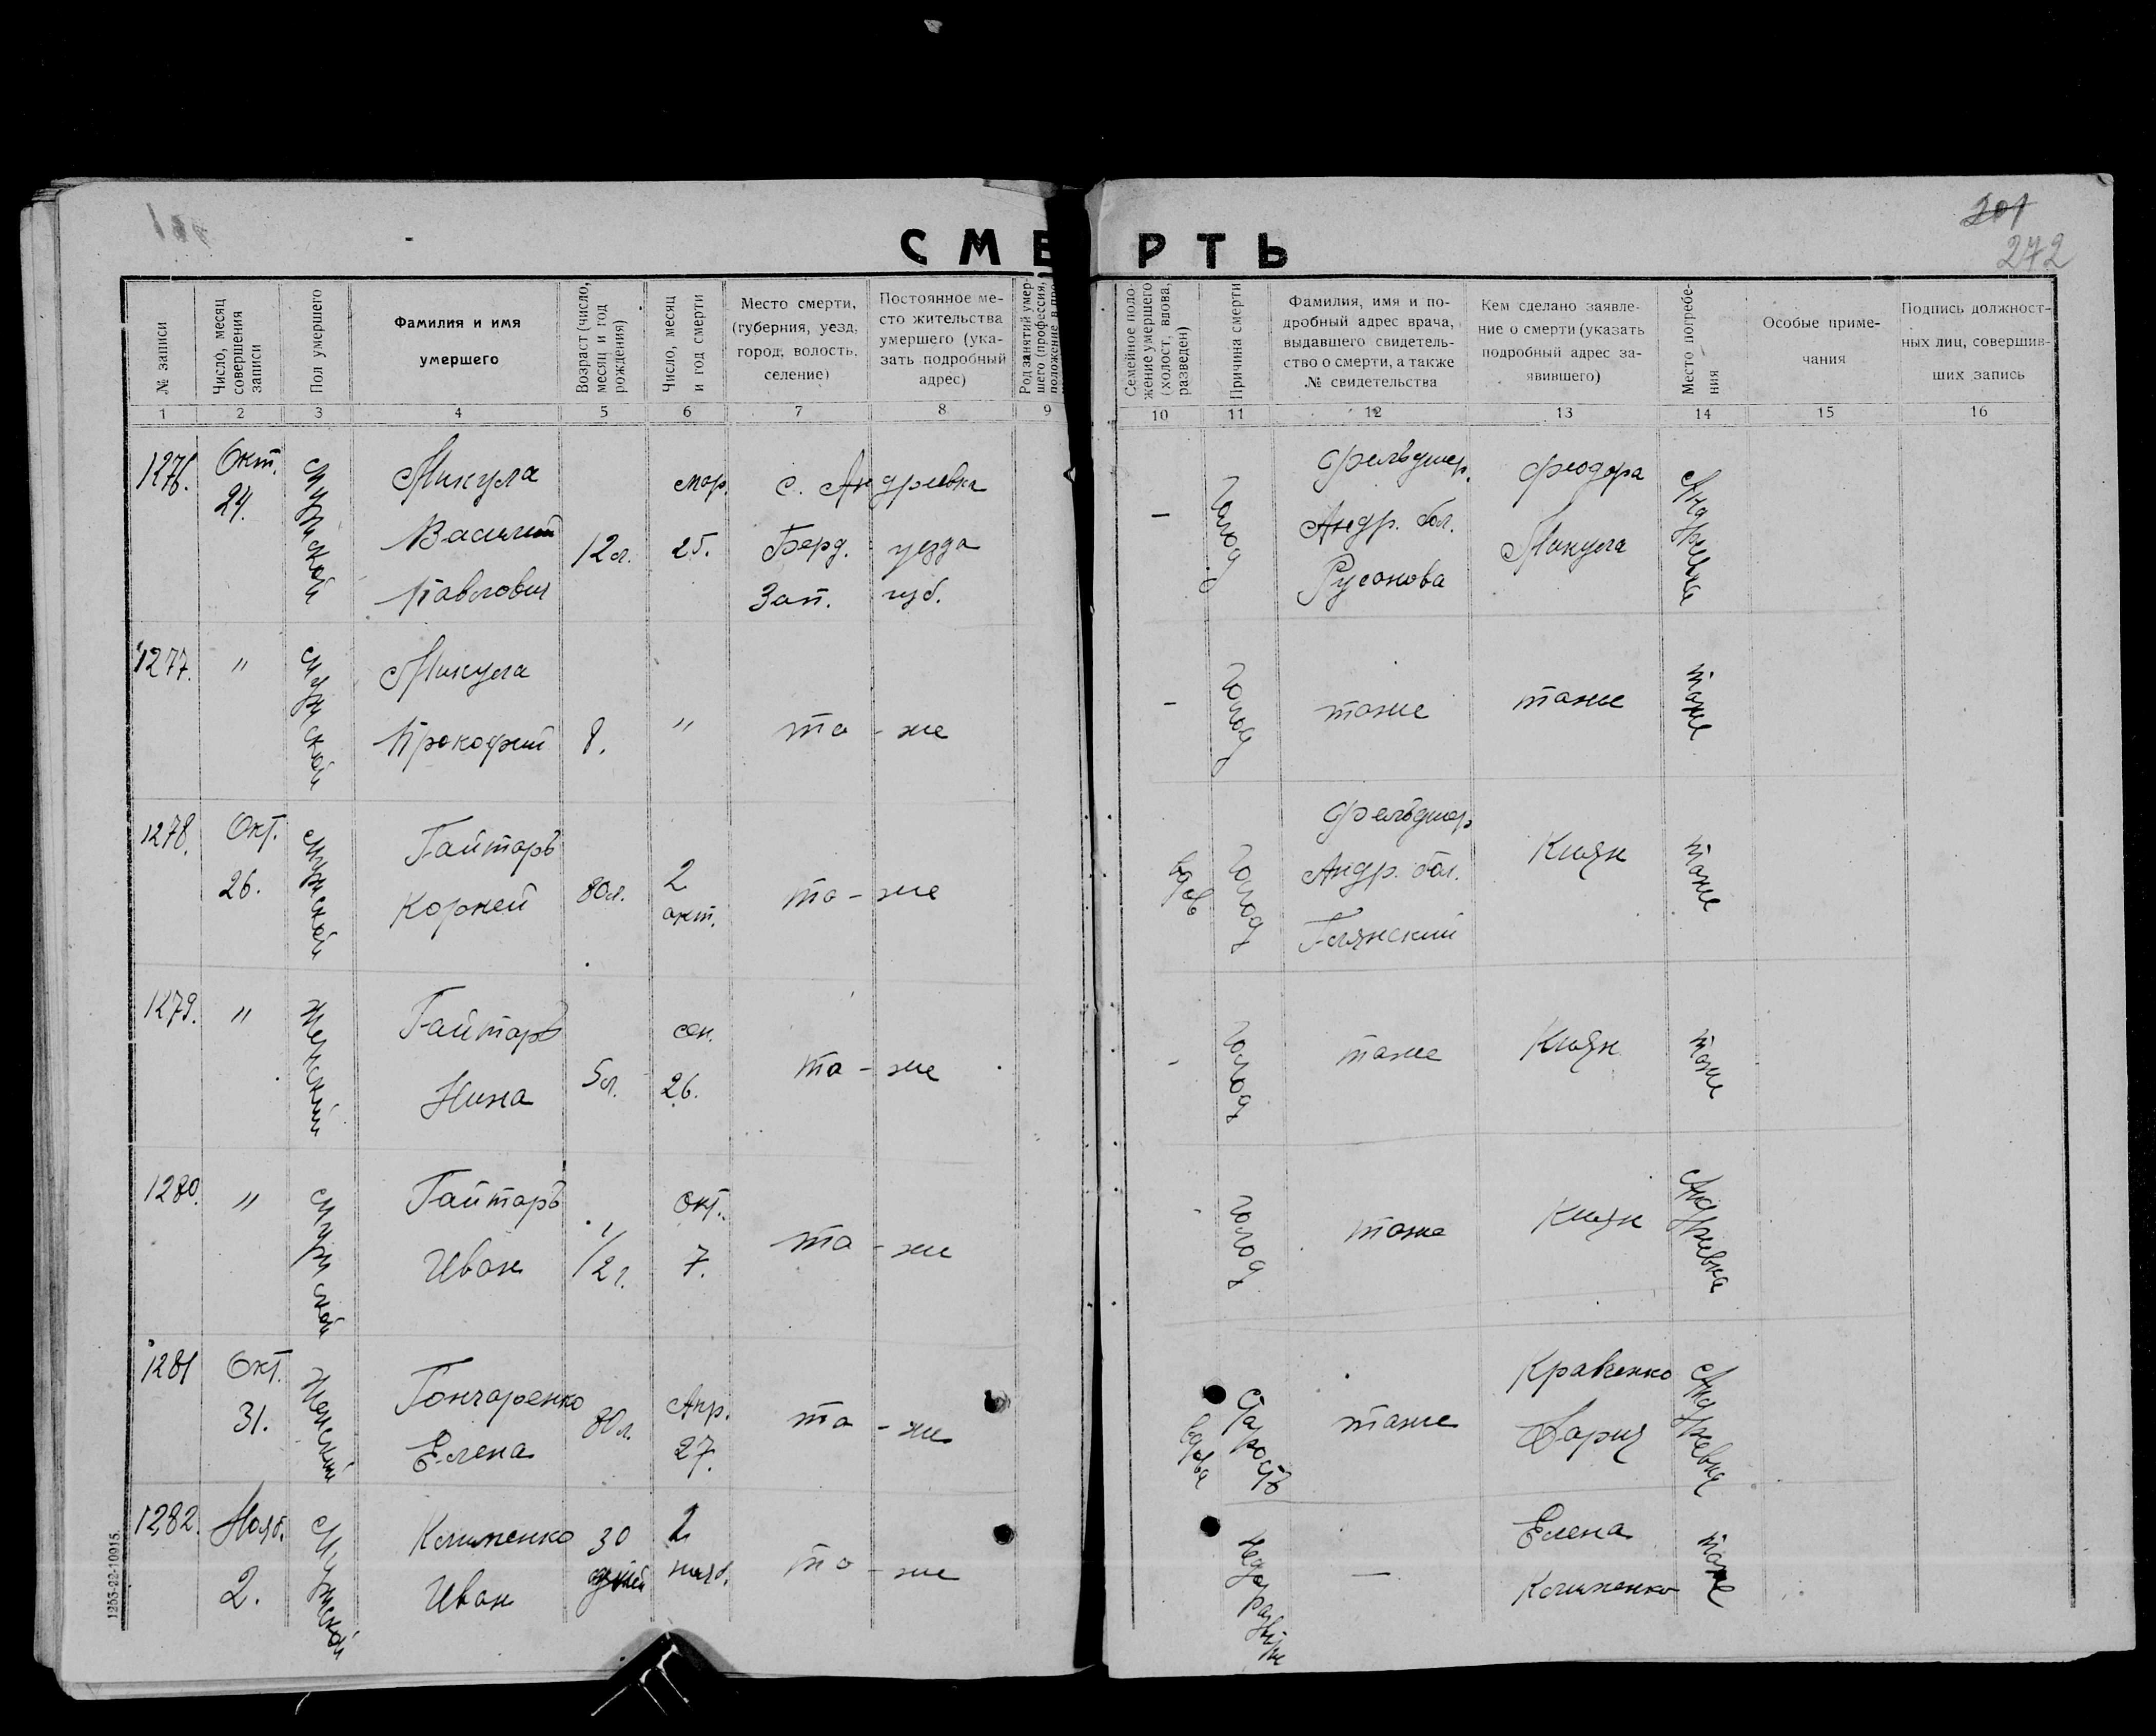 201
272
СМЕРТЬ
№ записи
Число, месяц совершения записи
Пол умершего
Фамилия и имя умершего
Возраст (число, месяц и год рождения)
Число, месяц и год смерти
Место смерти, (губерния, уезд, город, волость, селение)
Постоянное место жительства умершего (указать подробный адрес)
Род занятий умершего (профессия, положение в про-
Семейное положение умершего (холост, вдова, разведен)
Причина смерти
Фамилия, имя и подробный адрес врача, выдавшего свидетельство о смерти, а также № свидетельства
Кем сделано заявление о смерти (указать подробный адрес заявившего)
Место погребения
Особые примечания
Подпись должностных лиц, совершивших запись
1 2 3 4 5 6 7 8 9 10 11 12 13 14 15 16
1276. Окт. 24. Мужской Микула Василий Павлович 12 л. мар. 25. с. Андреевка Берд. уезда Зап. губ. – голод Фельдшер. Андр. бол. Русанова Феодора Микула Андреевка
1277. " Мужской Микула Прокофий 8. " то-же – голод тоже тоже тоже
1278. Окт. 26. Мужской Гайтаръ Корней 80 л. 2 окт. то-же вдов голод Фельдшер Андр. бол. Глянский Киян тоже
1279. " Женский Гайтаръ Нина 5 л. сен. 26. то-же - голод тоже Киян тоже
1280. " Мужской Гайтаръ Иван 1/2 г. окт. 7. то-же - голод тоже Киян Андреевка
1281 Окт. 31. Женский Гончаренко Елена 80 л. Апр. 27. то-же вдова Старость тоже Кравченко Дария Андреевка
1282. Нояб. 2. Мужской Клименко Иван 30 дней 2 нояб. то-же – Елена Клименко тоже
1253-22-10015.